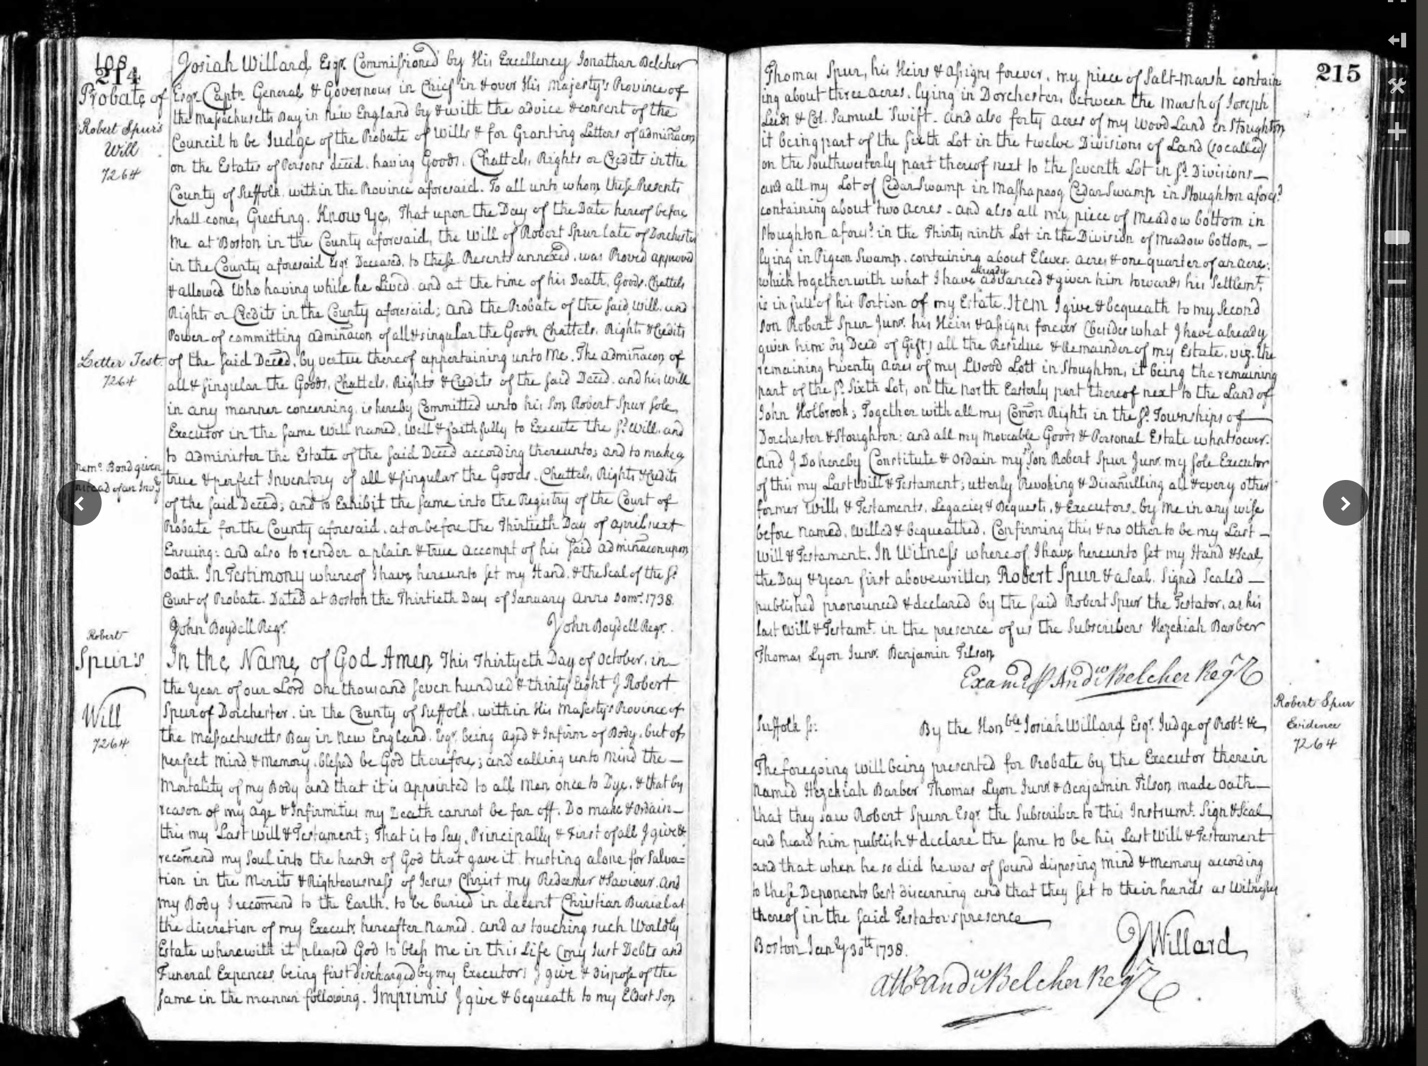 108
214
Probate of
Robert Spur's
Will
7264
Josiah Willard Esqr. Commissioned by His Excellency Jonathan Belcher
Esqr. Captn. General & Governour in Chief in & over His Majesty's Province of
the Massachusetts Bay in New England by & with the advice & consent of the
Council to be Judge of the Probate of Wills & for Granting Letters of adminacon
on the Estates of Persons deced. having Goods, Chattels, Rights or Credits in the
County of Suffolk within the Province aforesaid. To all unto whom these Presents
shall come, Greeting. Know Ye, That upon the Day of the Date hereof before
Me at Boston in the County aforesaid, the Will of Robert Spur late of Dorchester
in the County aforesaid Esqr. Deceased, to these Presents annexed, was Proved approved
& allowed Who having while he Lived and at the time of his Death, Goods, Chattels
Rights or Credits in the County aforesaid; And the Probate of the said Will and
Power of committing adminacon of all & singular the Goods Chattels, Rights & Credits
Letter Test.
7264
of the said Deced. by vertue thereof appertaining unto Me. The adminacon of
all & singular the Goods, Chattels, Rights & Credits of the said Deced. and his Will
in any manner concerning, is hereby Committed unto his Son Robert Spur sole
Executor in the same Will named, Well & faithfully to Execute the sd. Will, and
to administer the Estate of the said Deced according thereunto; and to make a
memo. Bond given
instead of an Invy
true & perfect Inventory of all & singular the Goods, Chattels, Rights & Credits
of the said Deced; and to Exhibit the same into the Registry of the Court of
Probate for the County aforesaid, at or before the Thirtieth Day of April next
Ensuing: and also to render a plain & true Accompt of his said adminacon upon
Oath. In Testimony whereof I have hereunto set my Hand, & the Seal of the sd.
Court of Probate. Dated at Boston the Thirtieth Day of January Anno Domi. 1738.
John Boydell Regr. John Boydell Regr.
Robert
Spur's
Will
7264
In the Name of God Amen This Thirtyeth Day of October, in
the Year of our Lord One thousand seven hundred & thirty Eight I Robert
Spur of Dorchester, in the County of Suffolk, within His Majesty's Province of
the Massachusetts Bay in New England, Esqr. being Aged & Infirm of Body, but of
perfect mind & Memory, blessed be God therefore; and calling unto Mind the
Mortality of my Body and that it is appointed to all Men once to Dye, & that by
reason of my Age & Infirmities my Death cannot be far off, Do make & Ordain
this my Last Will & Testament; That is to Say, Principally & First of all I give &
recomend my Soul into the hands of God that gave it, trusting alone for Salva=
tion in the Merits & Righteousness of Jesus Christ my Redeemer & Saviour, And
my Body I recomend to the Earth, to be buried in decent Christian Burial at
the discretion of my Executr. hereafter Named. and as touching such Worldly
Estate wherewith it pleased God to bless Me in this Life (my Just Debts and
Funeral Expences being first discharged by my Executor) I give & dispose of the
same in the manner following. Imprimis I give & bequeath to my Eldest Son
215
Thomas Spur, his Heirs & Assigns forever, my piece of Salt-Marsh contain
ing about three acres, lying in Dorchester, between the Marsh of Joseph
Leeds & Col. Samuel Swift. And also forty acres of my Wood Land in Stoughton
it being part of the Sixth Lot in the twelve Divisions of Land (so called)
on the Southwesterly part thereof next to the Seventh Lot in sd. Divisions
and all my Lot of Cedar Swamp in Mashapoag Cedar Swamp in Stoughton aforesd.
containing about two acres - and also all my piece of Meadow bottom in
Stoughton aforesd. in the Thirty ninth Lot in the Division of Meadow bottom,
lying in Pigeon Swamp, containing about Eleven acres & one quarter of an acre;
which together with what I have already advanced & given him towards his Settlemt.
is in full of his Portion of my Estate. Item I give & bequeath to my Second
Son Robert Spur Junr. his Heirs & assigns forever (besides what I have already
given him by Deed of Gift) all the Residue & Remainder of my Estate. viz. the
remaining twenty Acres of my Wood Lott in Stoughton, it being the remaining
part of the sd. Sixth Lot, on the north Easterly part thereof next to the Land of
John Holbrook; Together with all my Comon Rights in the sd. Townships of
Dorchester & Stoughton: and all my moveable Goods & Personal Estate whatsoever.
And I Do hereby Constitute & Ordain my Son Robert Spur Junr. my sole Executor
of this my Last Will & Testament; utterly Revoking & Disanulling all & every other
former Wills & Testaments, Legacies & Bequests, & Executors, by Me in any wise
before Named, Willed & bequeathed, Confirming this & no Other to be my Last
Will & Testament. In Witness whereof I have hereunto set my Hand & Seal
the Day & Year first above written Robert Spur & a Seal. Signed Sealed
published pronounced & declared by the said Robert Spur the Testator, as his
Last Will & Testamt. in the presence of us the Subscribers Hezekiah Barber
Thomas Lyon Junr. Benjamin Filson
Examd. P Andw. Belcher Regr.
Robert Spur
Evidence
7264
Suffolk ss: By the Honble Josiah Willard Esqr. Judge of Probt. &c
The foregoing Will being presented for Probate by the Executor therein
named Hezekiah Barber Thomas Lyon Junr. & Benjamin Filson made Oath
that they saw Robert Spurr Esqr. the Subscriber to this Instrumt. Sign & Seal
and heard him publish & declare the same to be his Last Will & Testament
and that when he so did he was of sound disposing mind & Memory according
to these Deponents best discerning and that they set to their hands as Witnesses
thereof in the said Testators presence
Boston Jany. 30th 1738. J Willard
Att. Andw. Belcher Regr.